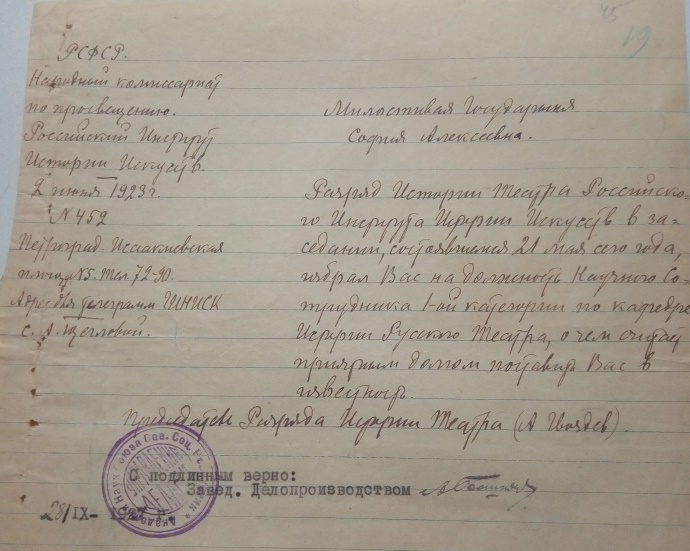 45
19
РСФСР.
Народный комиссариат
по просвещению.
Российский Институт
Истории Искусств.
2 июня 1923 г.
№ 452
Петроград. Исаакиевская
площ. № 5. Тел. 72-90.
Адрес для телеграмм ИНИСК
С. А. Щегловой.
Милостивая Государыня
София Алексеевна.
Разряд Истории Театра Российско-
го Института Истории Искусств в за-
седании, состоявшемся 21 мая сего года,
избрал Вас на должность Научного Со-
трудника 1-ой категории по кафедре
Истории Русского Театра, о чем считает
приятным долгом поставить Вас в
известность.
Председатель Разряда Истории Театра (А Гвоздев).
С подлинным верно:
Завед. Делопроизводством
28/IX-